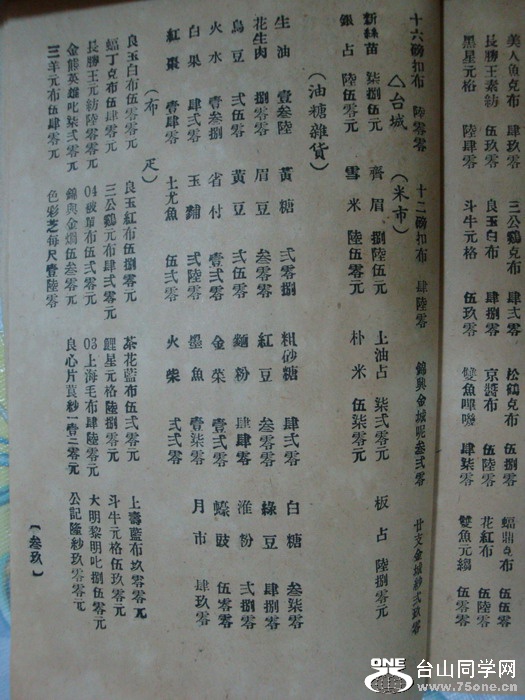 美人魚克布 肆零零 三公鷄克布 肆弍零 松鶴克布 伍捌零 蝠鼎克布 伍伍零
長勝王素紡 伍玖零 良玉白布 肆捌零 京醬布 伍陸零 花紅布 伍陸零
黑星元格 陸肆零 斗牛元格 伍玖零 雙魚嗶嘰 肆柒零 雙魚元縐 伍零零
十六磅扣布 陸零零 十二磅扣布 肆陸零 錦興金城呢叁弍零 廿支金城紗弍玖零
△台城 (米市)
新絲苗 柒捌伍元 齊眉 捌陸伍元 上油占 柒弍零元 板占 陸捌零元
銀占 陸伍零元 雪米 陸伍零元 朴米 伍柒零元
(油糖雜貨)
生油 壹叁陸 黃糖 弍零捌 粗砂糖 肆弍零 白糖 叁柒零
花生肉 捌零零 眉豆 叁零零 紅豆 叁零零 綠豆 肆捌零
烏豆 弍伍零 黃豆 弍伍零 麵粉 肆肆零 淮粉 弍捌零
火水 壹叁捌 省付 壹弍零 金菜 壹弍零 蠔豉 伍零零
白果 肆弍零 玉鏽 弍陸零 墨魚 壹柒零 月市 肆玖零
紅棗 壹肆零 土尤魚 伍弍零 火柴 弍弍零
(布疋)
良玉白布伍零零元 良玉紅布伍捌零元 茶花藍布伍弍零元 上壽藍布玖零零元
蝠丁克布伍肆零元 三公鷄元布肆弍零元 鯉星元格陸捌零元 斗牛元格伍玖零元
長勝王元紡陸零零元 04被單布伍弍零元 03上海毛布肆陸零元 大明黎明叱捌伍零元
金熊英雄叱柒弍零元 錦興金燭伍叁零元 良心片莨紗一壹二零元 公記隆紗玖零零元
三羊元布伍肆零元 色彩芝每尺壹陸零
〔叁玖〕
ONE 台山同学网
www.75one.cn